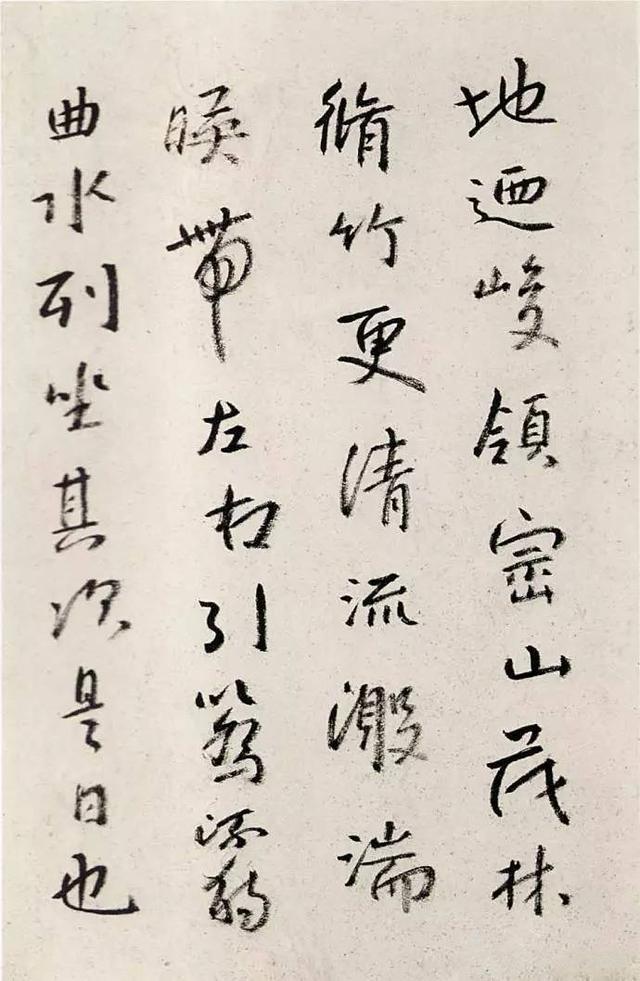 地迺峻領崈山茂林
脩竹更清流激湍
暎帶左右引以為流觴
曲水列坐其次是日也